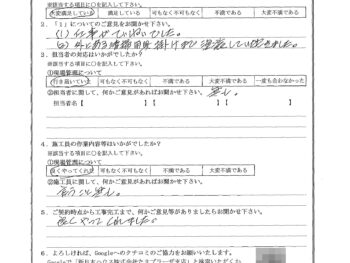 ※該当する項目に○を記入して下さい。
大変満足している 満足している 可もなく不可もなく 不満である 大変不満である
2.「1」についてのご意見をお聞かせ下さい。
(1) 仕事がていねいでした。
3. 担当者の対応はいかがでしたか?
※該当する項目に○を記入して下さい。
①現場管理について
行き届いている 可もなく不可もなく 不満である 大変不満である 一度も会わなかった
②担当者に関して、何かご意見があればお聞かせ下さい。
無し。
担当者名【 】【 】【 】
4. 施工員の作業内容等はいかがでしたか?
※該当する項目に○を記入して下さい。
①現場管理について
良くやってくれた 可もなく不可もなく 不満である 大変不満である
②施工員に関して、何かご意見があればお聞かせ下さい。
言うこと無し。
5. ご契約時点から工事完工まで、何かご意見等がありましたらお聞かせ下さい。
良くやってくれました。
6. よろしければ、Googleへのクチコミのご協力をお願いいたします。